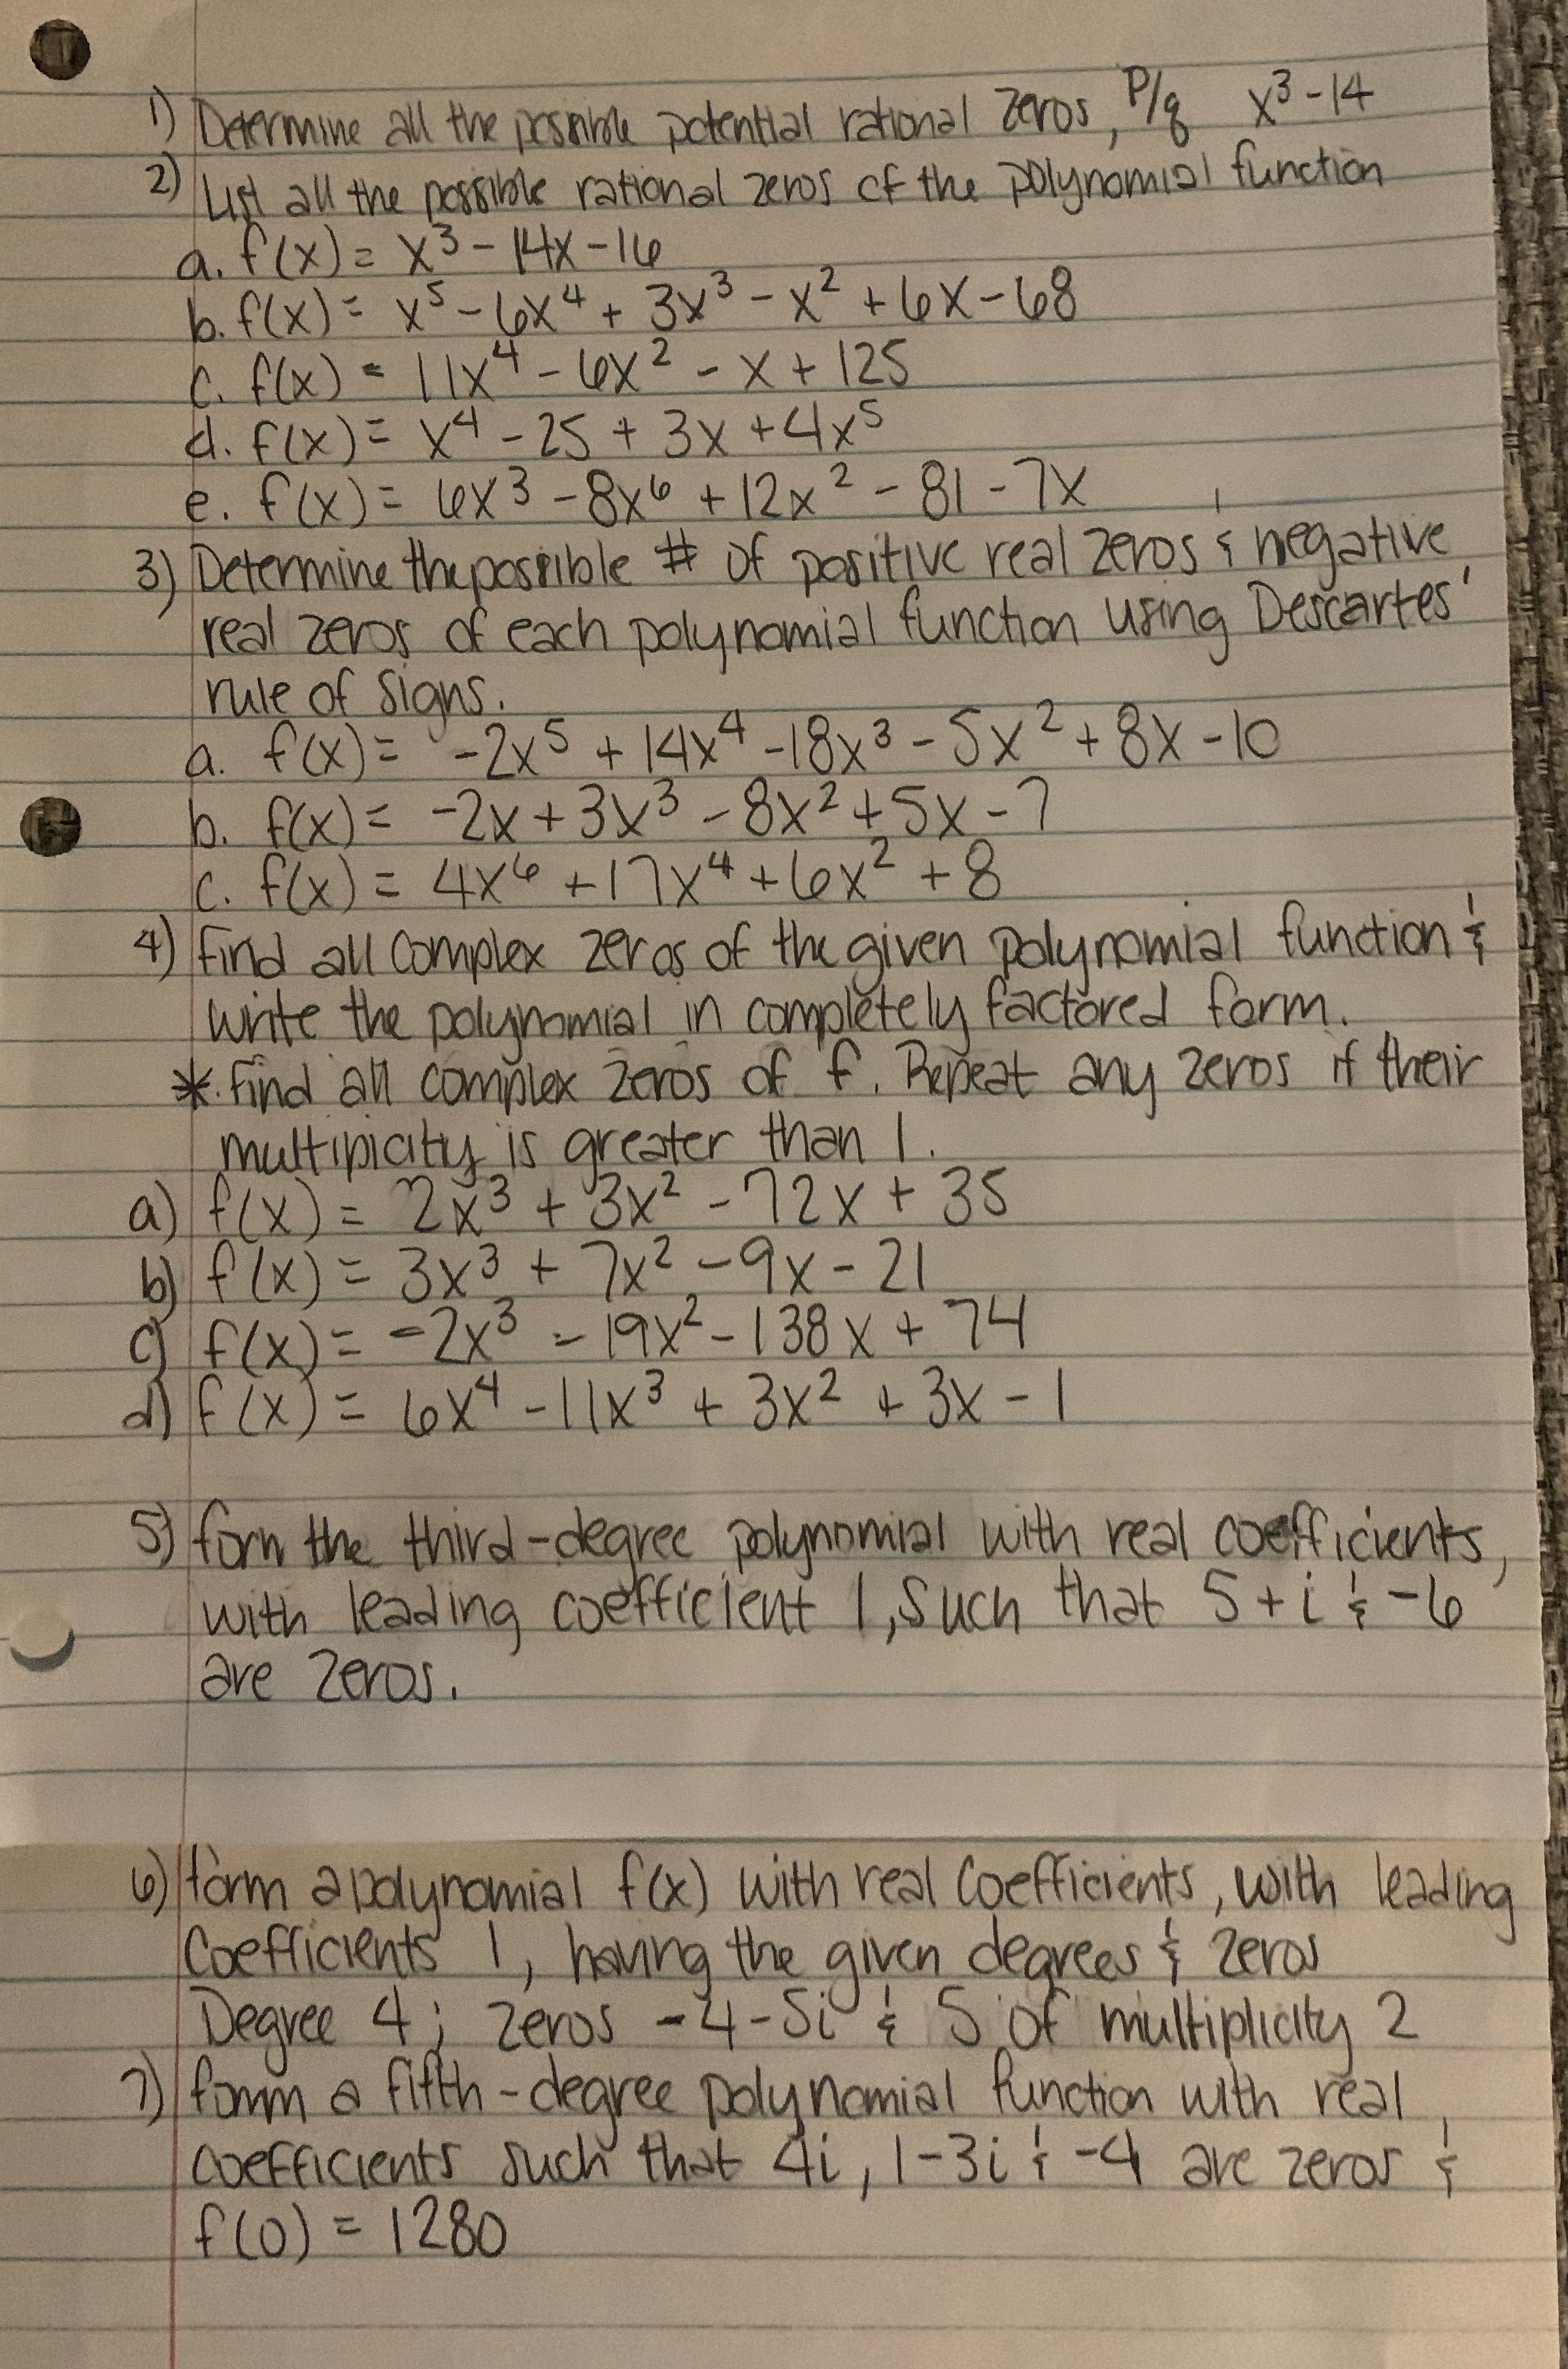 1) Determine all the possible potential rational zeros, P/q x³-14
2) List all the possible rational zeros of the polynomial function
a. f(x) = x³ - 14x - 16
b. f(x) = x⁵ - 6x⁴ + 3x³ - x² + 6x - 68
c. f(x) = 11x⁴ - 6x² - x + 125
d. f(x) = x⁴ - 25 + 3x + 4x⁵
e. f(x) = 6x³ - 8x⁶ + 12x² - 81 - 7x
3) Determine the possible # of positive real zeros & negative
real zeros of each polynomial function using Descartes'
rule of signs.
a. f(x) = -2x⁵ + 14x⁴ - 18x³ - 5x² + 8x - 10
b. f(x) = -2x + 3x³ - 8x² + 5x - 7
c. f(x) = 4x⁶ + 17x⁴ + 6x² + 8
4) Find all complex zeros of the given polynomial function &
write the polynomial in completely factored form.
* Find all complex zeros of f. Repeat any zeros if their
multiplicity is greater than 1.
a) f(x) = 2x³ + 3x² - 72x + 35
b) f(x) = 3x³ + 7x² - 9x - 21
c) f(x) = -2x³ - 19x² - 138x + 74
d) f(x) = 6x⁴ - 11x³ + 3x² + 3x - 1
5) form the third-degree polynomial with real coefficients,
with leading coefficient 1, such that 5+i & -6
are zeros.
6) form a polynomial f(x) with real coefficients, with leading
coefficients 1, having the given degrees & zeros
Degree 4; zeros -4-5i & 5 of multiplicity 2
7) form a fifth-degree polynomial function with real
coefficients such that 4i, 1-3i & -4 are zeros &
f(0) = 1280